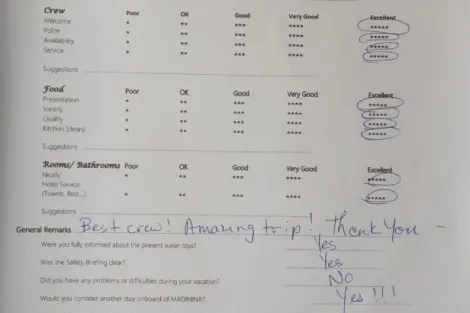 Crew Poor OK Good Very Good Excellent
Welcome * ** *** **** *****
Polite * ** *** **** *****
Availability * ** *** **** *****
Service * ** *** **** *****
Suggestions
Food Poor OK Good Very Good Excellent
Presentation * ** *** **** *****
Variety * ** *** **** *****
Quality * ** *** **** *****
Kitchen (clean) * ** *** **** *****
Suggestions
Rooms/ Bathrooms Poor OK Good Very Good Excellent
Neatly * ** *** **** *****
Hotel Service
(Towels, Bed,...) * ** *** **** *****
Suggestions
General Remarks Best crew! Amazing trip! Thank You -
Were you fully informed about the present water toys? Yes
Was the Safety Briefing clear? Yes
Did you have any problems or difficulties during your vacation? NO
Would you consider another stay onboard of MADININA? Yes!!!